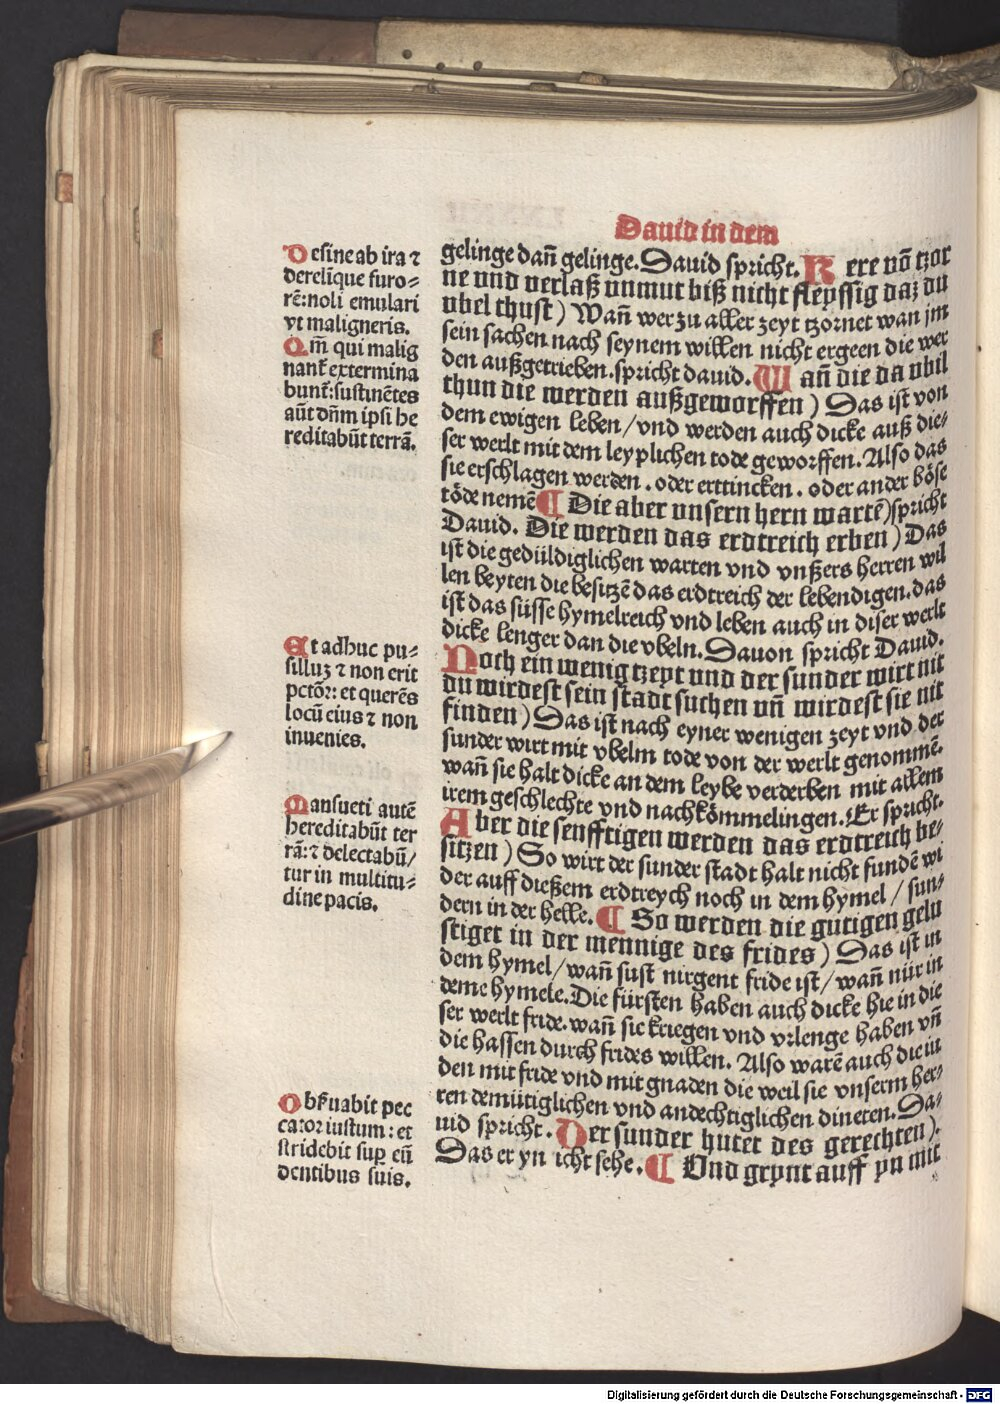 Dauid in dem
Desine ab ira ⁊
derelīque furo⸗
rē:noli emulari
vt maligneris.
Qm̄ qui malig
nant᷑ extermina
bunt᷑:sustinētes
aūt dn̄m ipsi he
reditabūt terrā.
Et adhuc pu⸗
silluꝫ ⁊ non erit
pctōꝛ: et querēs
locū eius ⁊ non
inuenies.
Mansueti autē
hereditabūt ter
rā:⁊ delectabū/
tur in multitu⸗
dine pacis.
Obẜuabit pec
catoꝛ iustum: et
stridebit suꝑ eū
dentibus suis.
gelinge dan̄ gelinge. Dauid spricht. Kere vō tzor
ne vnd verlaß vnmut biß nicht fleyssig daꝫ du
vbel thust) Wan̄ wer zu aller zeyt tzornet wan jm
sein sachen nach seynem willen nicht ergeen die wer
den außgetrieben. spricht dauid. Wan̄ die da vbil
thun die werden außgeworffen) Das ist von
dem ewigen leben/vnd werden auch dicke auß die⸗
ser werlt mit dem leyplichen tode geworffen. Also das
sie erschlagen werden. oder erttincken. oder ander böse
töde nemē ¶ Die aber vnsern hern wartē) spricht
Dauid. Die werden das erdtreich erben) Das
ist die gedüldiglichen warten vnd vnßers herren wil
len beyten die besitzē das erdtreich der lebendigen. das
ist das süsse hymelreich vnd leben auch in diser werlt
dicke lenger dan die vbeln. Dauon spricht Dauid.
Noch ein wenig tzeyt vnd der sunder wirt nit
du wirdest sein stadt suchen vn̄ wirdest sie nit
finden) Das ist nach eyner wenigen zeyt vnd der
sunder wirt mit vbelm tode von der werlt genommē.
wan̄ sie halt dicke an dem leybe verderben mit allem
irem geschlechte vnd nachkömmelingen. Er spricht.
Aber die senfftigen werden das erdtreich be⸗
sitzen) So wirt der sunder stadt halt nicht fundē wi
der auff dießem erdtreych noch in dem hymel/ sun⸗
dern in der helle. ¶ So werden die gutigen gelu
stiget in der mennige des frides) Das ist in
dem hymel/wan̄ sust nirgent fride ist/wan̄ nür in
deme hymele. Die fürsten haben auch dicke hie in die
ser werlt fride. wan̄ sie kriegen vnd vrlenge haben vn̄
die hassen durch frides willen. Also warē auch die iu
den mit fride vnd mit gnaden die weil sie vnserm her⸗
ren demütiglichen vnd andechtiglichen dineten. Da⸗
uid spricht. Der sunder hutet des gerechten).
Das er yn icht sehe. ¶ Vnd grynt auff yn mit
Digitalisierung gefördert durch die Deutsche Forschungsgemeinschaft - DFG